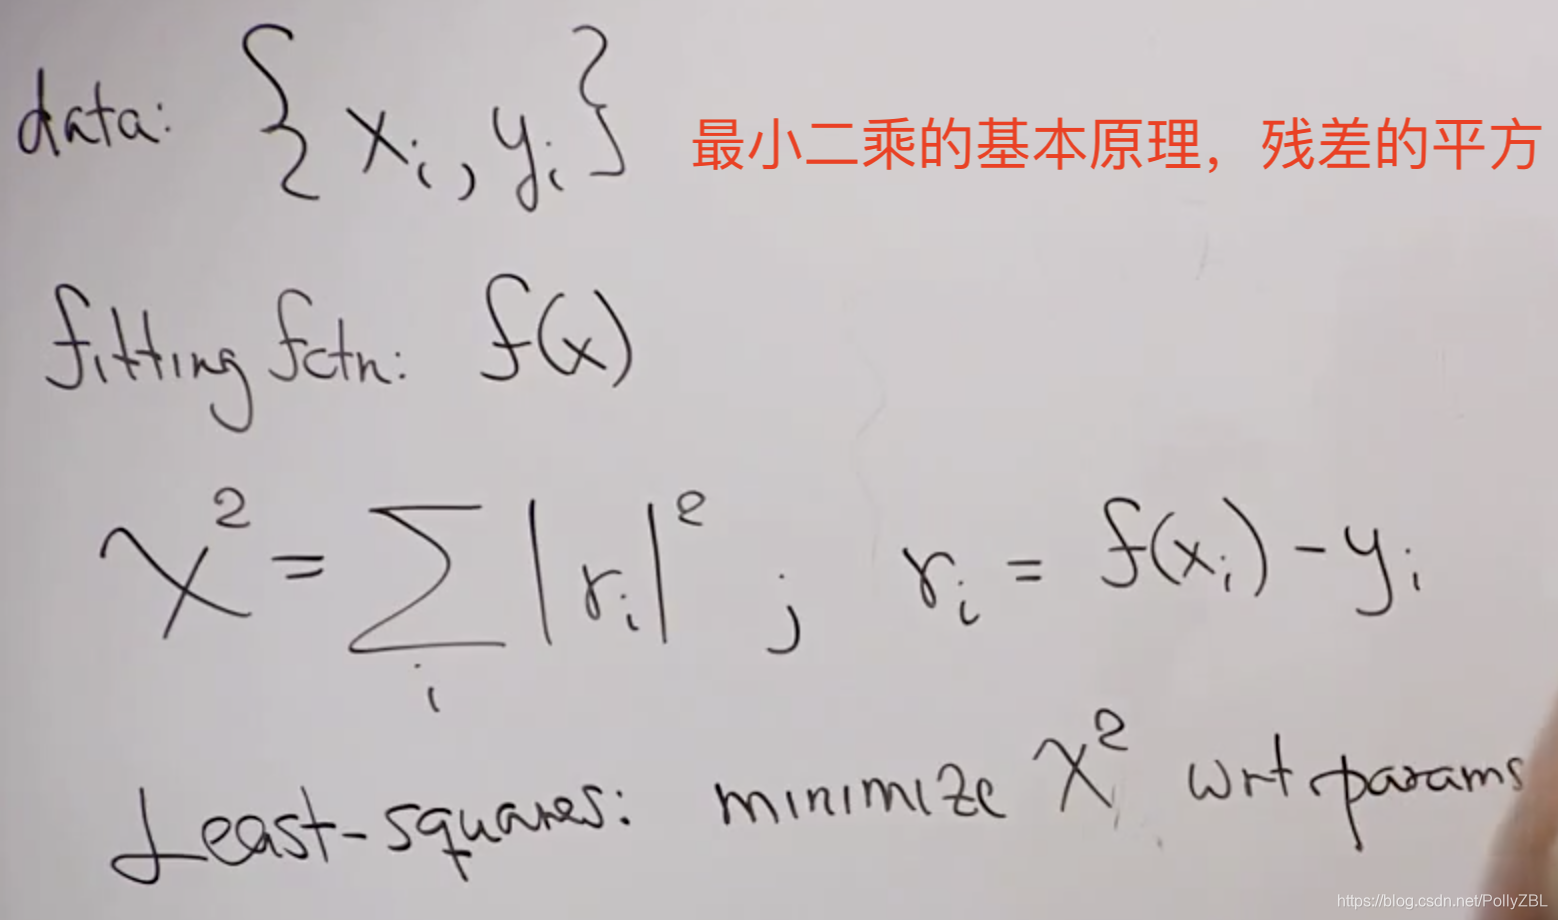 data: { xᵢ, yᵢ } 最小二乘的基本原理，残差的平方
fitting fctn: f(x)
χ² = ∑ᵢ |rᵢ|² ; rᵢ = f(xᵢ) - yᵢ
Least-squares: minimize χ² wrt params
https://blog.csdn.net/PollyZBL